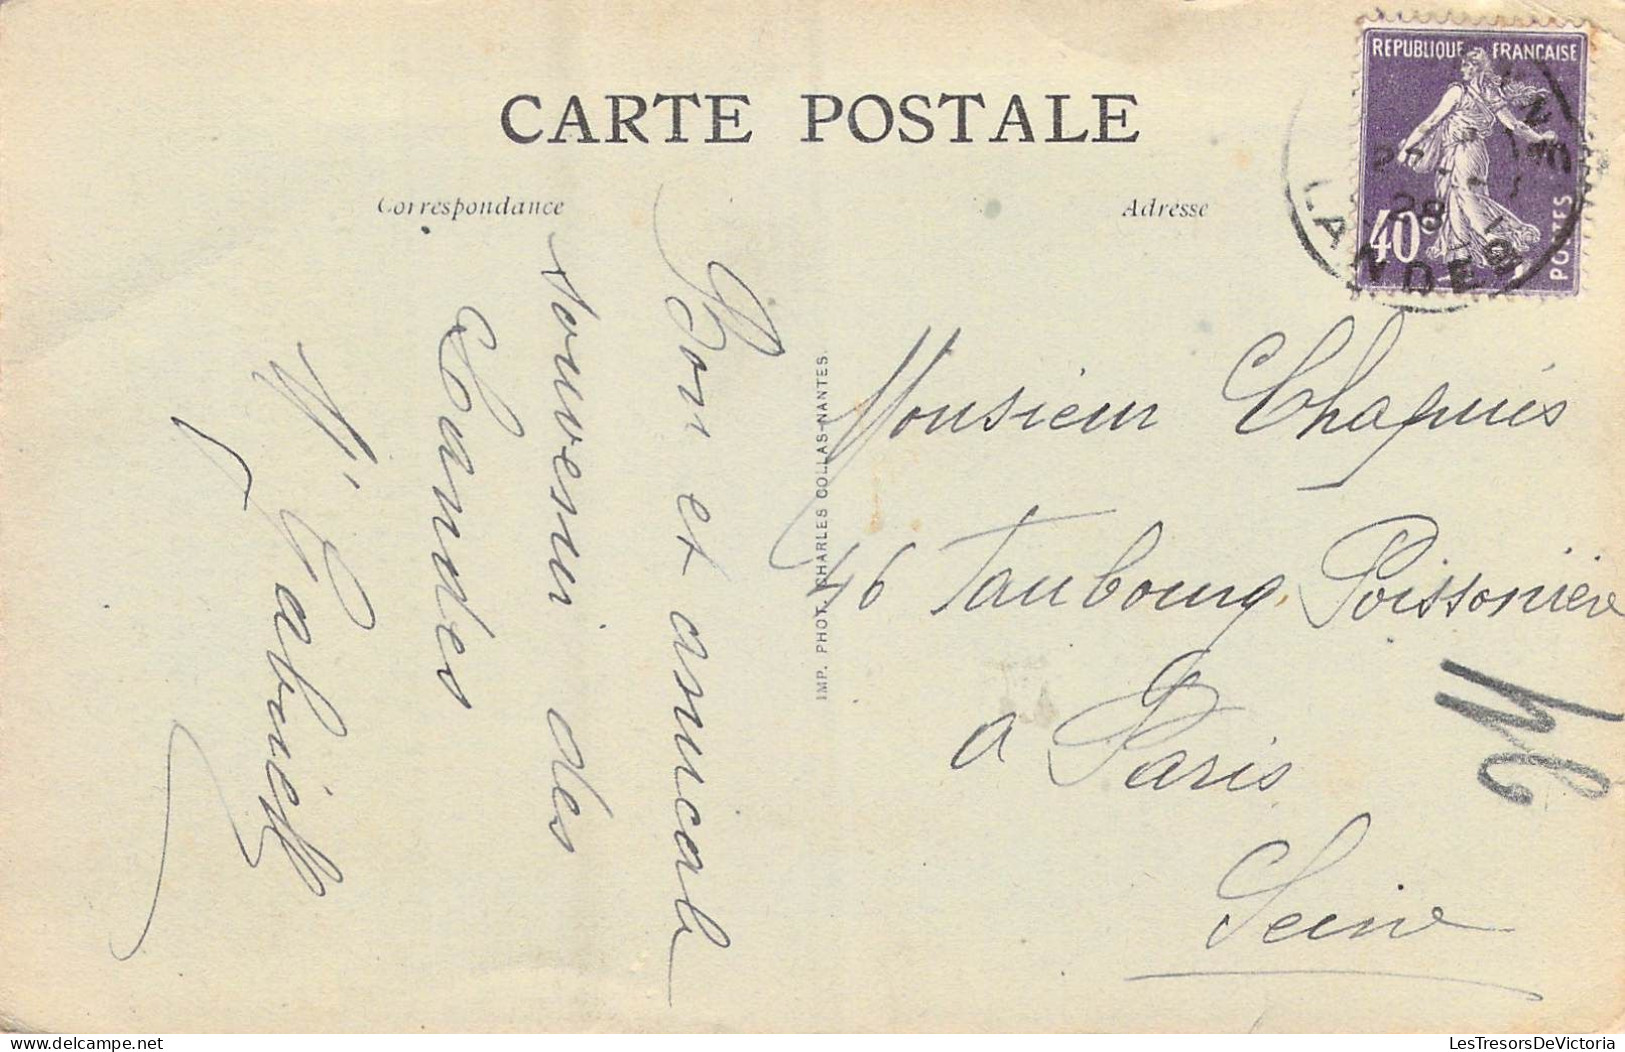 CARTE POSTALE
Correspondance
Adresse
REPUBLIQUE FRANÇAISE
40c
POSTES
LANDES
28
Bon et amicale
souvenir des
Landes
IMP. PHOT. CHARLES COLLAS-NANTES
Monsieur Chapuis
46 Faubourg Poissonière
a Paris
Seine
LesTresorsDeVictoria